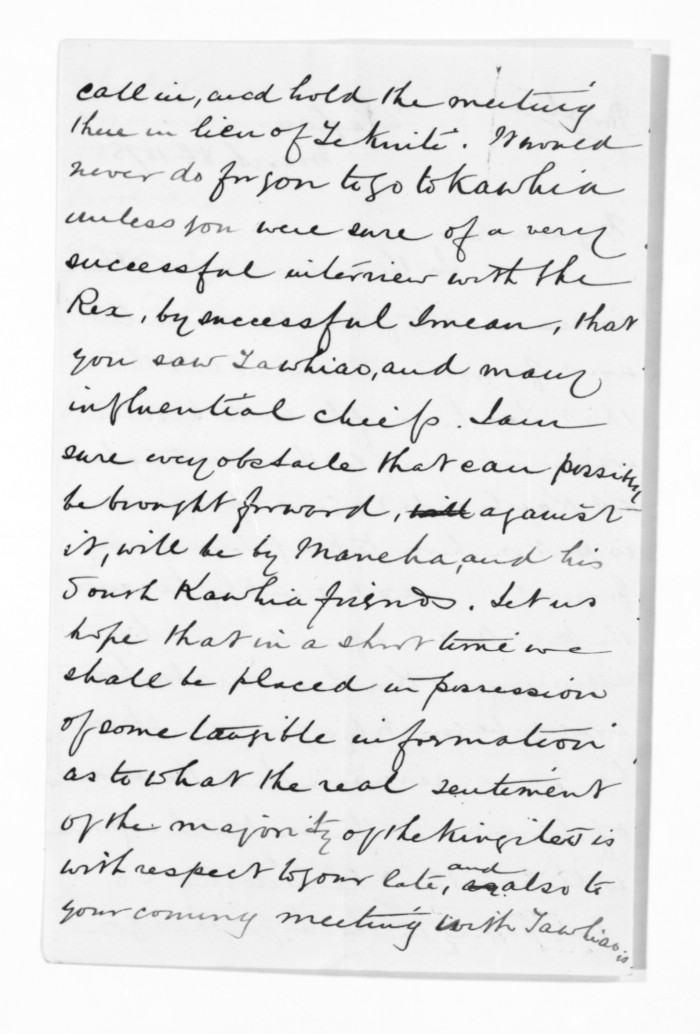 call in, and hold the meeting
there in lieu of Te Kuiti. It would
never do for you to go to Kawhia
unless you were sure of a very
successful interview with the
Rex, by successful I mean, that
you saw Tawhiao, and many
influential chiefs. I am
sure every obstacle that can possibly
be brought forward, will against
it, will be by Maneha, and his
South Kawhia friends. Let us
hope that in a short time we
shall be placed in possession
of some tangible information
as to what the real sentiment
of the majority of the Kingites is
with respect to your late, and also to
your coming meeting with Tawhiao is